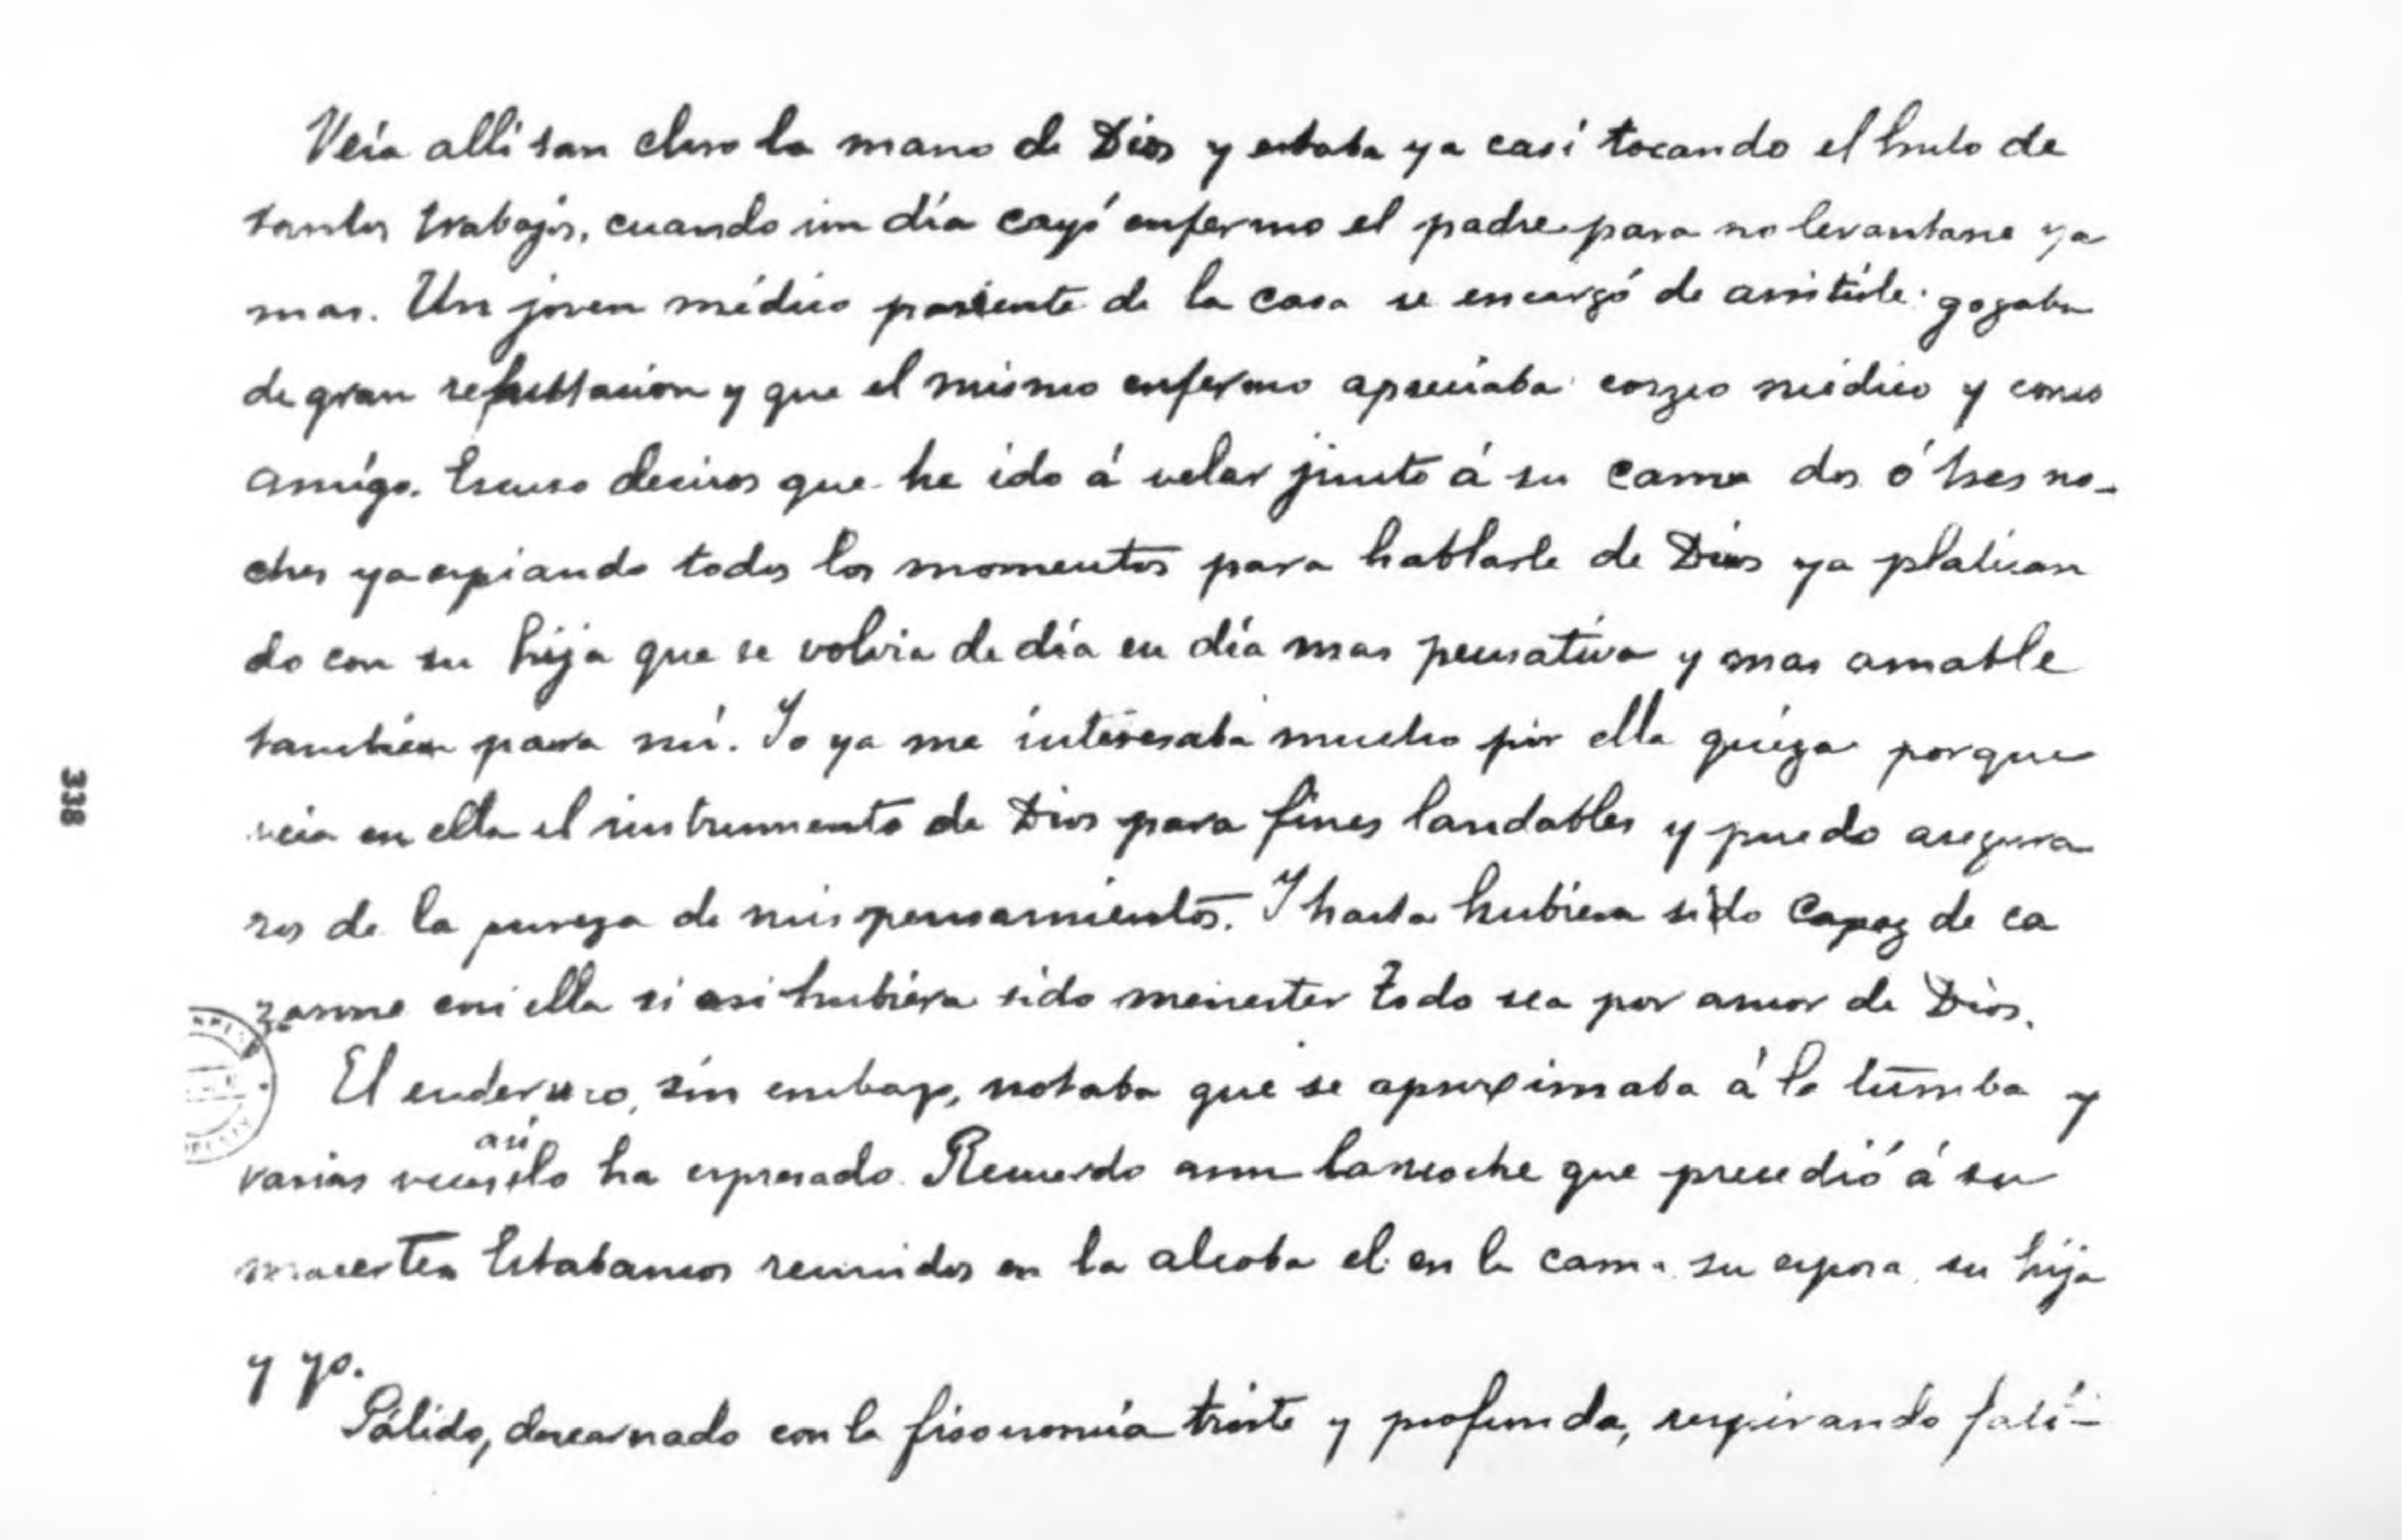 Veía alli tan claro la mano de Dios y estaba ya casi tocando el fruto de
tantos trabajos, cuando un día cayó enfermo el padre para no levantarse ya
mas. Un joven médico pariente de la casa se encargó de asistirle: gozaba
de gran reputtacion y que el mismo enfermo apreciaba como médico y como
amigo. Escuso deciros que he ido á velar junto á su cama dos ó tres no-
ches ya espiando todos los momentos para hablarle de Dios ya platican
do con su hija que se volvia de día en día mas pensativa y mas amable
tambien para mí. Yo ya me interesaba mucho por ella quiza porque
veia en ella el instrumento de Dios para fines laudables y puedo asegura
ros de la pureza de mis pensamientos. Y hasta hubiera sido capaz de ca
zarme con ella si asi hubiera sido menester todo sea por amor de Dios.
El sin embargo, notaba que se aproximaba á la tumba y
así
varias veces lo ha espresado. Recuerdo aun la noche que precedió á su
muerte Estabamos reunidos en la alcoba el en la cama su esposa su hija
y yo.
Pálido, descarnado con la fisonomía triste y profunda, respirando fati-
338